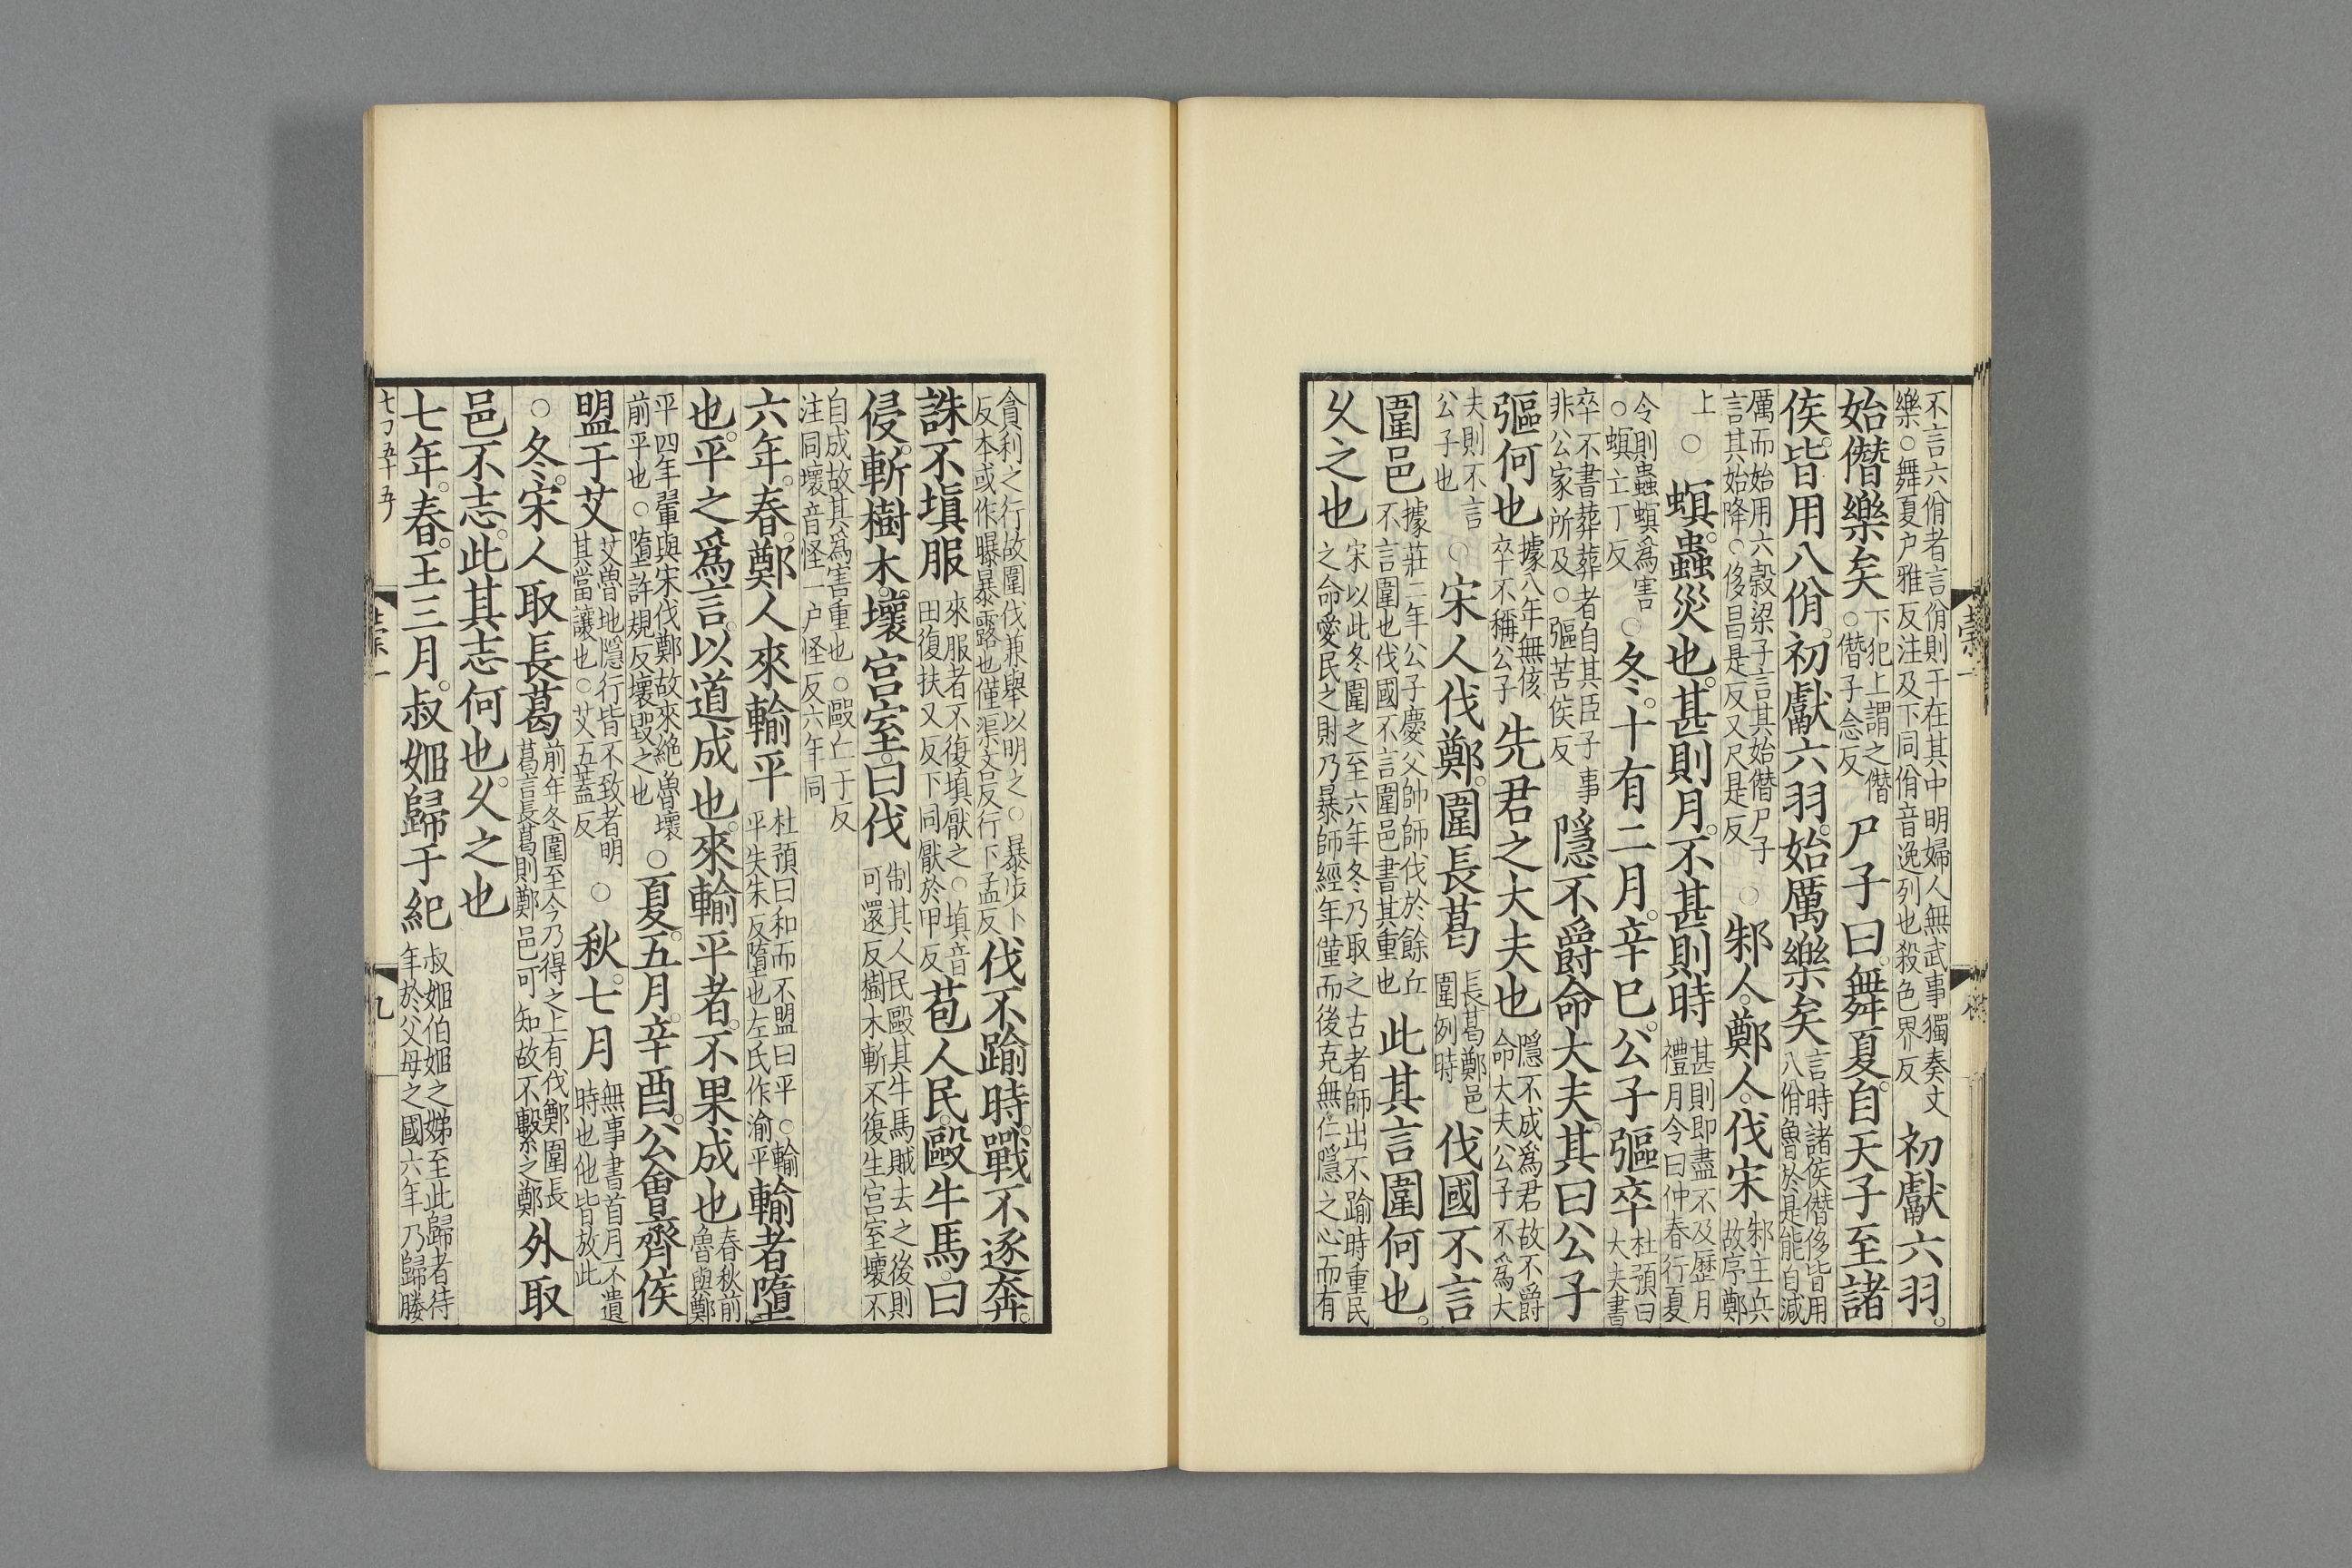 不言六佾者言佾則干在其中明婦人無武事獨奏文樂○舞夏户雅反注及下同佾音逸列也殺色界反初獻六羽。
始僭樂矣下犯上謂之僭○僭子念反尸子曰。舞夏。自天子至諸
侯。皆用八佾。初獻六羽。始厲樂矣言時諸侯僭侈皆用八佾魯於是能自減
厲而始用六穀梁子言其始僭尸子言其始降○侈昌是反又尺是反○邾人。鄭人。伐宋邾主兵故序鄭
上○螟。蟲災也。甚則月。不甚則時甚則即盡不及歷月禮月令曰仲春行夏
令則蟲螟爲害○螟亡丁反○冬。十有二月。辛巳。公子彄卒杜預曰大夫書
卒不書葬葬者自其臣子事非公家所及○彄苦侯反隱不爵命大夫。其曰公子
彄何也據八年無侅卒不稱公子先君之大夫也隱不成爲君故不爵命大夫公子不爲大
夫則不言公子也○宋人伐鄭。圍長葛長葛鄭邑圍例時伐國不言
圍邑據莊二年公子慶父帥師伐於餘丘不言圍也伐國不言圍邑書其重也此其言圍何也。
久之也宋以此冬圍之至六年冬乃取之古者師出不踰時重民之命愛民之財乃暴師經年僅而後克無仁隱之心而有
貪利之行故圍伐兼舉以明之○暴步卜反本或作曝暴露也僅渠吝反行下孟反伐不踰時。戰不逐奔。
誅不填服來服者不復填厭之○填音田復扶又反下同厭於甲反苞人民。毆牛馬。曰
侵。斬樹木。壞宮室。曰伐制其人民毆其牛馬賊去之後則可還反樹木斬不復生宮室壞不
自成故其爲害重也○毆丘于反注同壞音怪一户怪反六年同
六年。春。鄭人來輸平杜預曰和而不盟曰平○輸平失朱反墮也左氏作渝平輸者墮
也。平之爲言。以道成也。來輸平者。不果成也春秋前魯與鄭
平四年翬與宋伐鄭故來絕魯壞前平也○墮許規反壞毀之也○夏。五月。辛酉。公會齊侯
盟于艾艾魯地隱行皆不致者明其當讓也○艾五蓋反○秋。七月無事書首月不遺時也他皆放此
○冬。宋人取長葛前年冬圍至今乃得之上有伐鄭圍長葛言長葛則鄭邑可知故不繫之鄭外取
邑不志。此其志何也。久之也
七年。春。王三月。叔姬歸于紀叔姬伯姬之娣至此歸者待年於父母之國六年乃歸媵